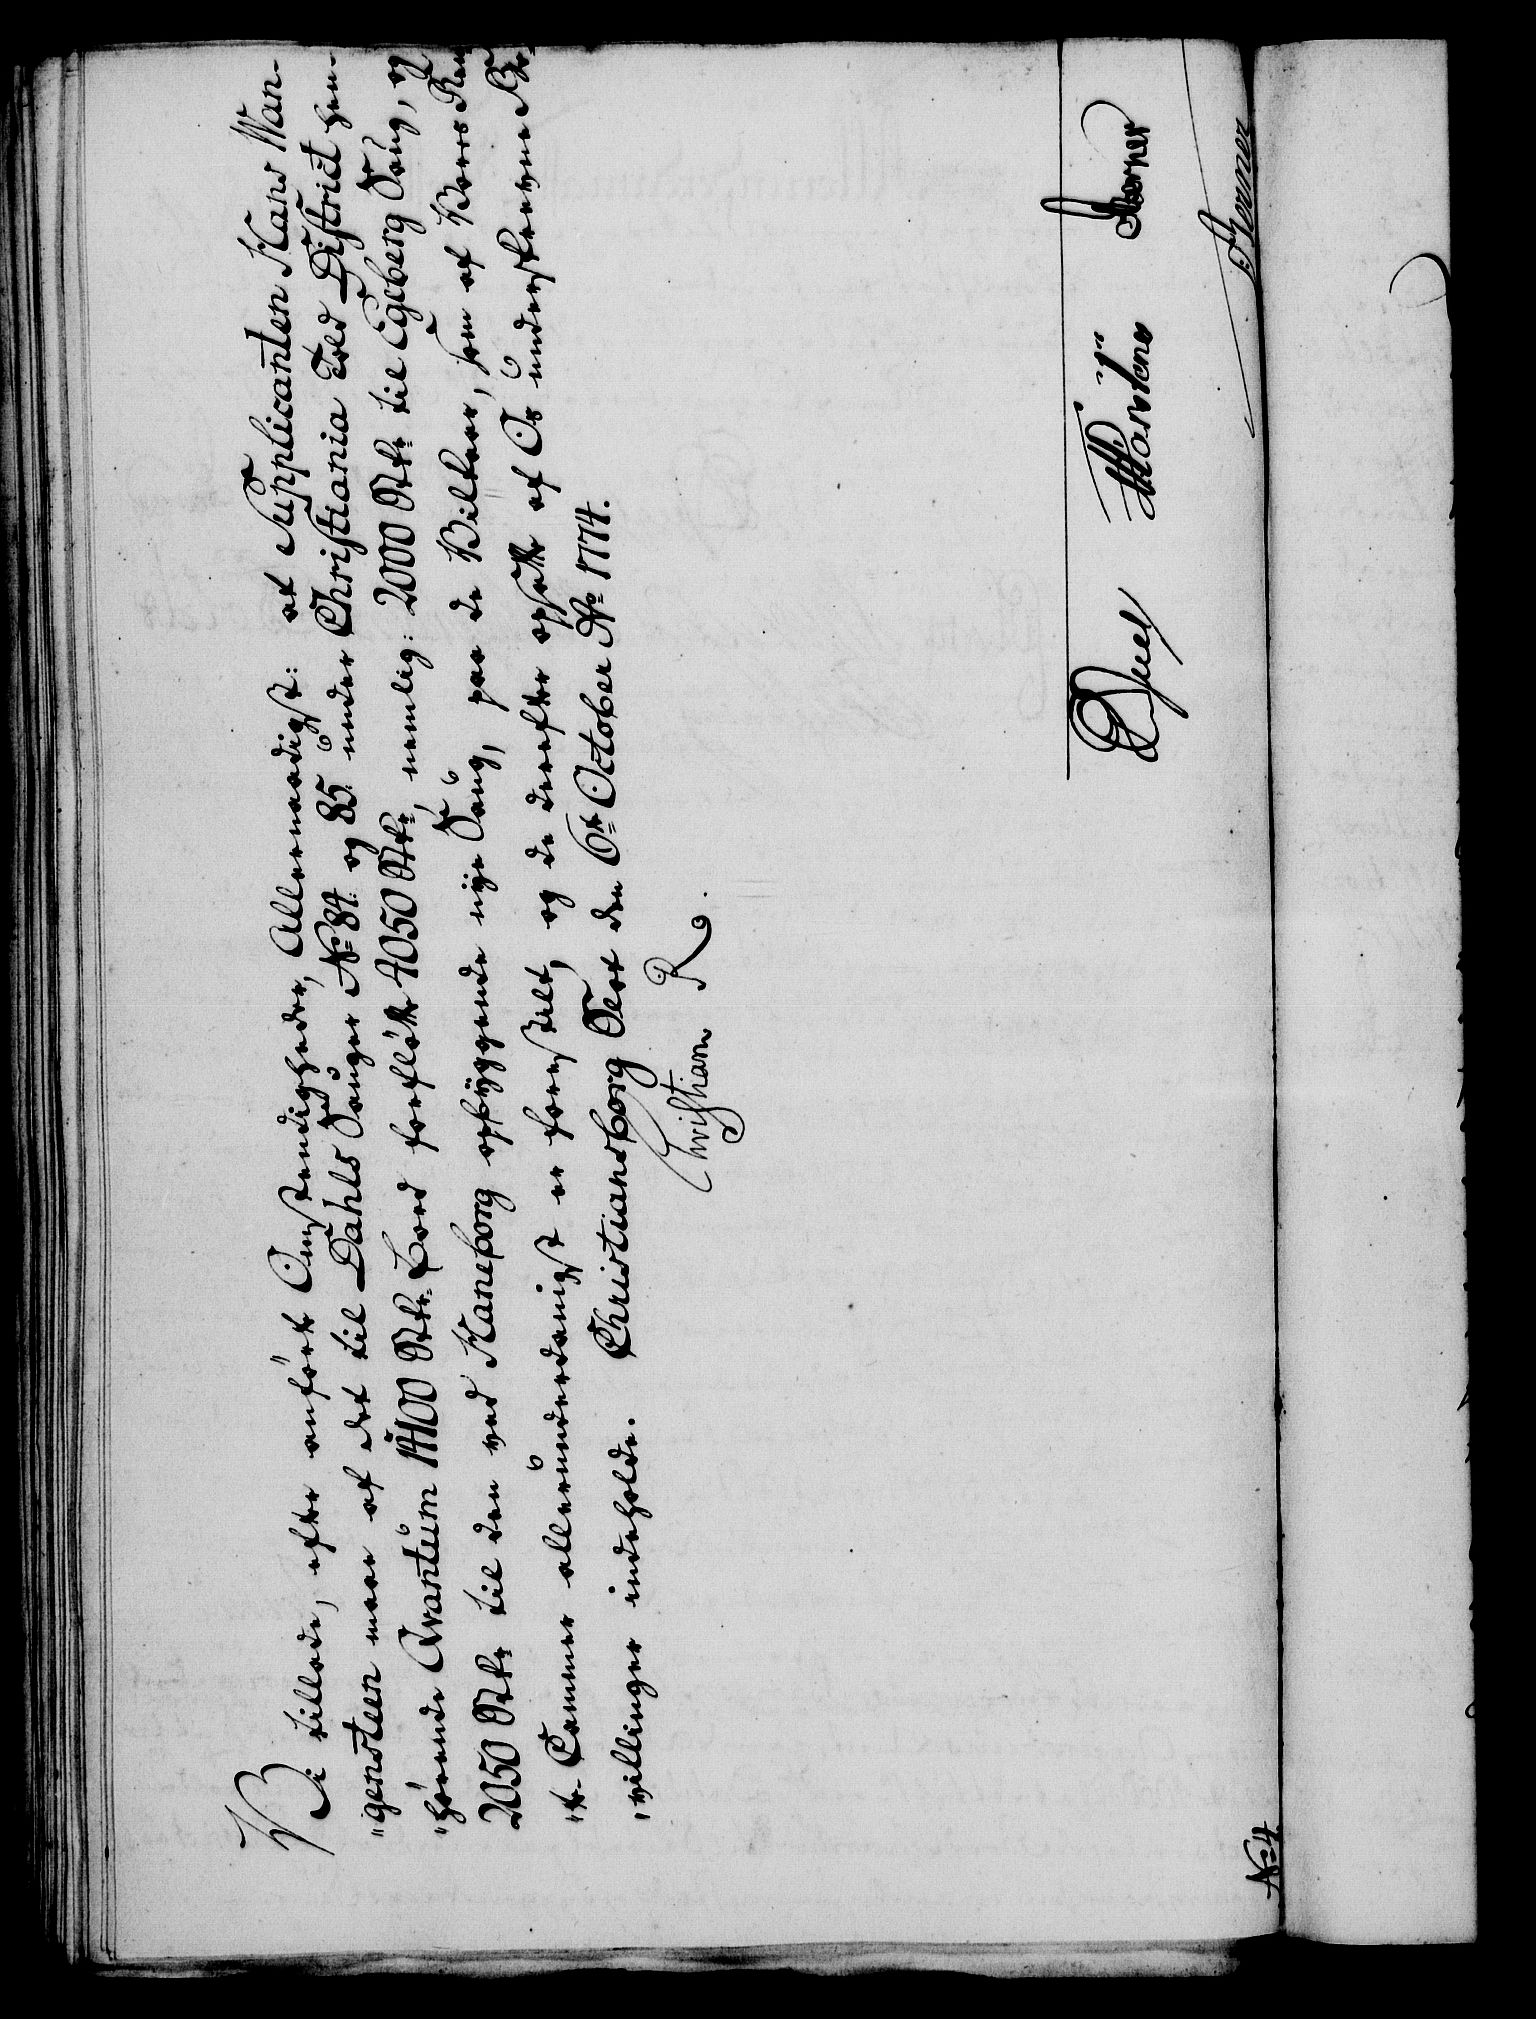 Vi tillade, efter anførte Omstændigheder, Allernaadigst: at Supplicanten Hans Wan-
"gensteen maae af det til Dahls Sauger No 84. og 85. under Christiania Told District hen-
"hørende Qvantum 14100 Rdr. Bord forflötte 4050 Rdr., nemlig: 2000 Rdr. til Egeberg Saug, og
2050 Rdr. til den ved Kaneborg opbyggende nÿe Saug, paa de Vilkaar, som af Vores Ren-
"te Cammer allerunderdanigst er forestilt, og de derefter opsatte af Os underskrevne Be-
"villinger indeholde. Christiansborg Slot den 6te October Ao 1774.
Christian R.
Juel
Martens
Berner
No 4
Berner